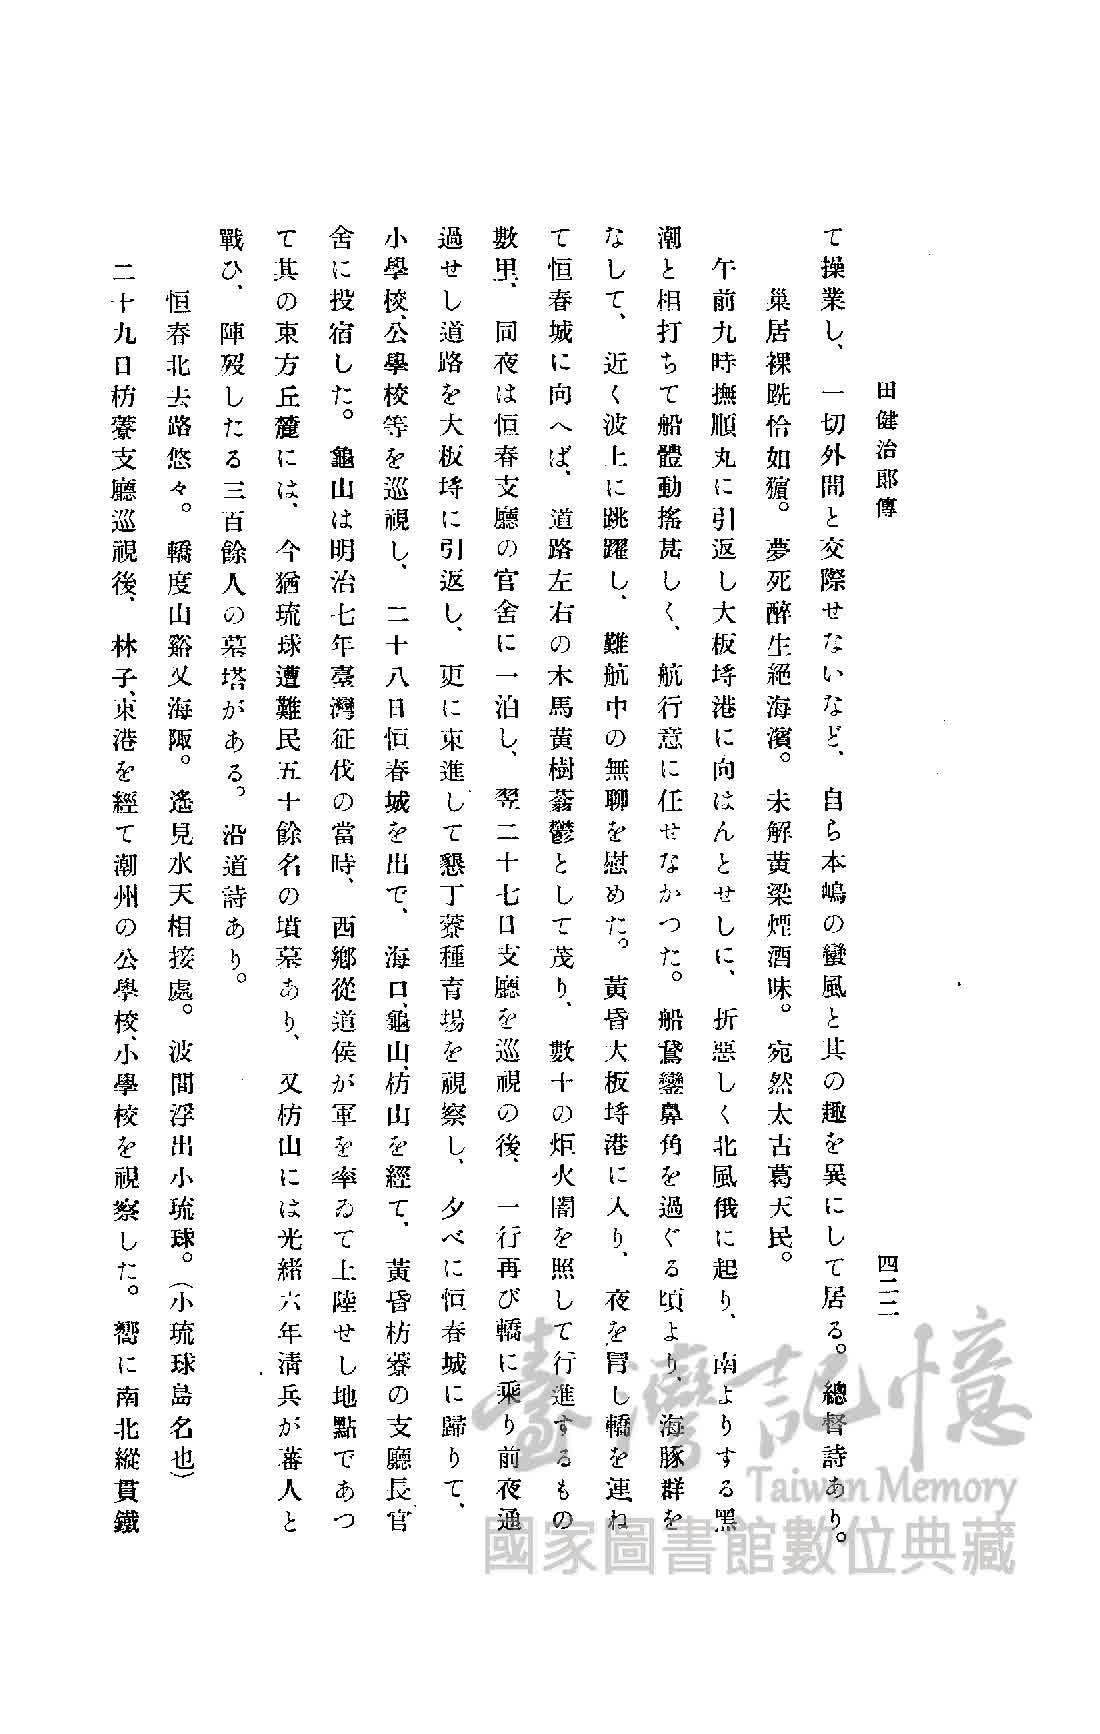 田健治郎傳
四二二
て操業し、一切外間と交際せないなど、自ら本嶋の蠻風と其の趣を異にして居る。總督詩あり。
巢居裸跣恰如獱。夢死醉生絕海濱。未解黃粱煙酒味。宛然太古葛天民。
午前九時撫順丸に引返し大板埓港に向はんとせしに、折惡しく北風俄に起り、南よりする黑
潮と相打ちて船體動搖甚しく、航行意に任せなかつた。船鵞鑾鼻角を過ぐる頃より、海豚群を
なして、近く波上に跳躍し、難航中の無聊を慰めた。黃昏大板埓港に入り、夜を冐し轎を連ね
て恒春城に向へば、道路左右の木馬黃樹蓊鬱として茂り、數十の炬火闇を照して行進するもの
數里、同夜は恒春支廳の官舍に一泊し、翌二十七日支廳を巡視の後、一行再び轎に乘り前夜通
過せし道路を大板埓に引返し、更に東進して懇丁藔種育場を視察し、夕べに恒春城に歸りて、
小學校、公學校等を巡視し、二十八日恒春城を出で、海口、龜山、枋山を經て、黃昏枋寮の支廳長官
舍に投宿した。龜山は明治七年臺灣征伐の當時、西鄕從道侯が軍を率ゐて上陸せし地點であつ
て其の東方丘麓には、今猶琉球遭難民五十餘名の墳墓あり、又枋山には光緖六年淸兵が蕃人と
戰ひ、陣歿したる三百餘人の墓塔がある。沿道詩あり。
恒春北去路悠々。轎度山谿又海陬。遙見水天相接處。波間浮出小琉球。(小琉球島名也)
二十九日枋藔支廳巡視後、林子、東港を經て潮州の公學校、小學校を視察した。嚮に南北縱貫鐵
臺灣記憶
Taiwan Memory
國家圖書館數位典藏